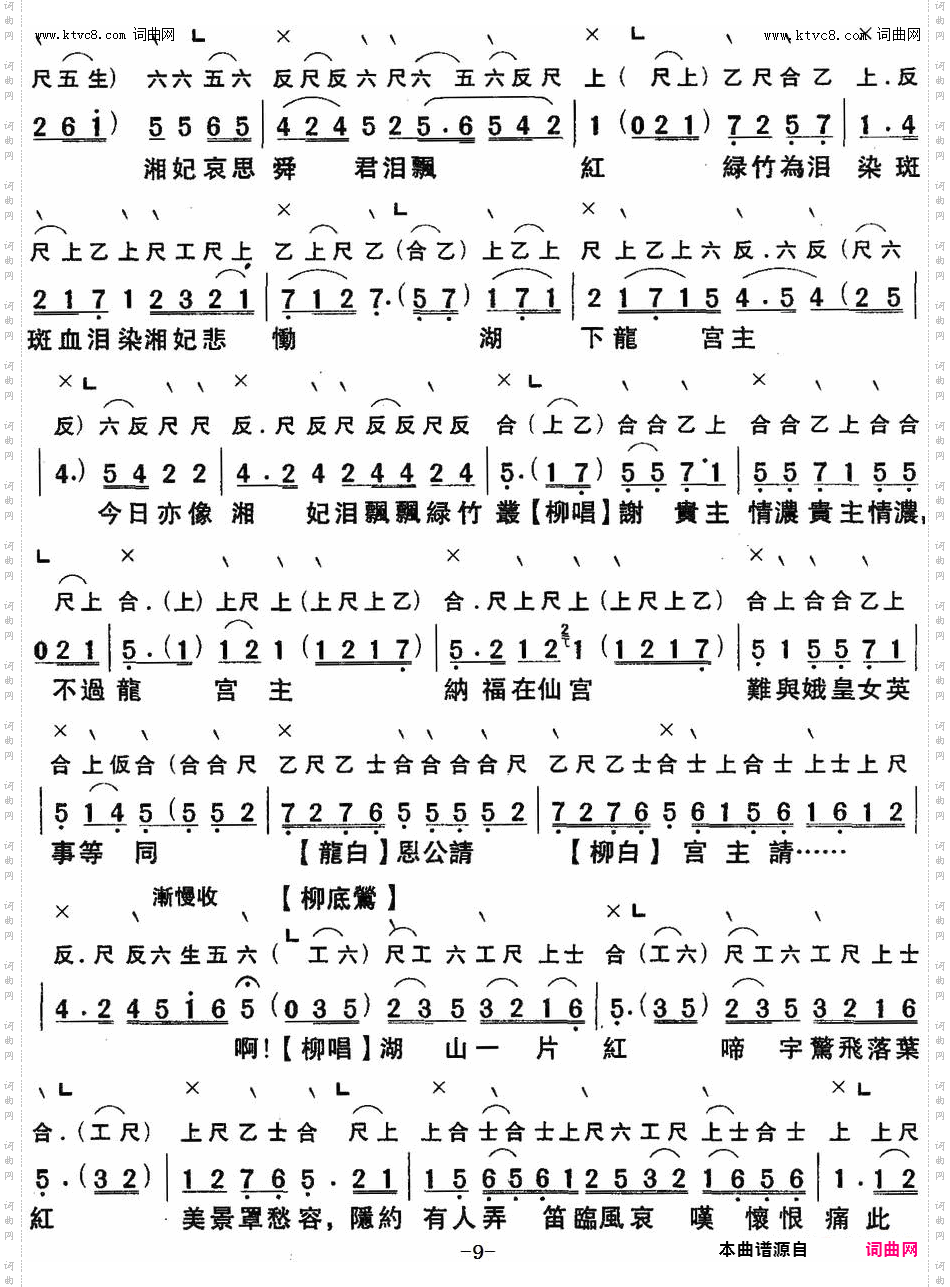 www.ktvc8.com 词曲网 www.ktvc8.com 词曲网
尺五生) 六六五六 反尺反六尺六 五六反尺 上( 尺上)乙尺合乙 上.反
2 6 1) 5 5 6 5 | 4 2 4 5 2 5.6 5 4 2 | 1 (0 2 1) 7 2 5 7 | 1.4
湘妃哀思舜 君泪飄 紅 綠竹為泪 染斑
尺上乙上尺工尺上 乙上尺乙(合乙)上乙上 尺上乙上六反.六反(尺六
2 1 7 1 2 3 2 1 | 7 1 2 7.(5 7) 1 7 1 | 2 1 7 1 5 4.5 4 (2 5
斑血泪染湘妃悲 慟 湖 下龍 宮主
反)六反尺尺 反.尺反尺反反尺反 合(上乙)合合乙上 合合乙上合合
| 4.) 5 4 2 2 | 4.2 4 2 4 4 2 4 | 5.(1 7) 5 5 7 1 | 5 5 7 1 5 5
今日亦像 湘 妃泪飄飄綠竹叢【柳唱】謝 貴主 情濃貴主情濃,
尺上 合.(上)上尺上(上尺上乙) 合.尺上尺上(上尺上乙) 合上合合乙上
0 2 1 | 5.(1) 1 2 1 (1 2 1 7) | 5.2 1 2 1 (1 2 1 7) | 5 1 5 5 7 1
不過龍 宮 主 納福在仙宮 難與娥皇女英
合上仮合(合合尺 乙尺乙士合合合合尺 乙尺乙士合士上合士上士上尺
| 5 1 4 5 (5 5 2 | 7 2 7 6 5 5 5 5 2 | 7 2 7 6 5 6 1 5 6 1 6 1 2
事等 同 【龍白】恩公請 【柳白】宮主請……
漸慢收 【柳底鶯】
反.尺反六生五六( 工六)尺工六工尺上士 合(工六)尺工六工尺上士
| 4.2 4 5 1 6 5 (0 3 5) 2 3 5 3 2 1 6 | 5.(3 5) 2 3 5 3 2 1 6
啊!【柳唱】湖 山一片 紅 啼 宇驚飛落葉
合.(工尺) 上尺乙士合 尺上 上合士合士上尺六工尺 上士合士 上 上尺
5.(3 2) | 1 2 7 6 5. 2 1 | 1 5 6 5 6 1 2 5 3 2 1 6 5 6 | 1. 1 2
紅 美景罩愁容,隱約 有人弄 笛臨風哀 嘆 懷恨 痛此
-9-
本曲谱源自 词曲网